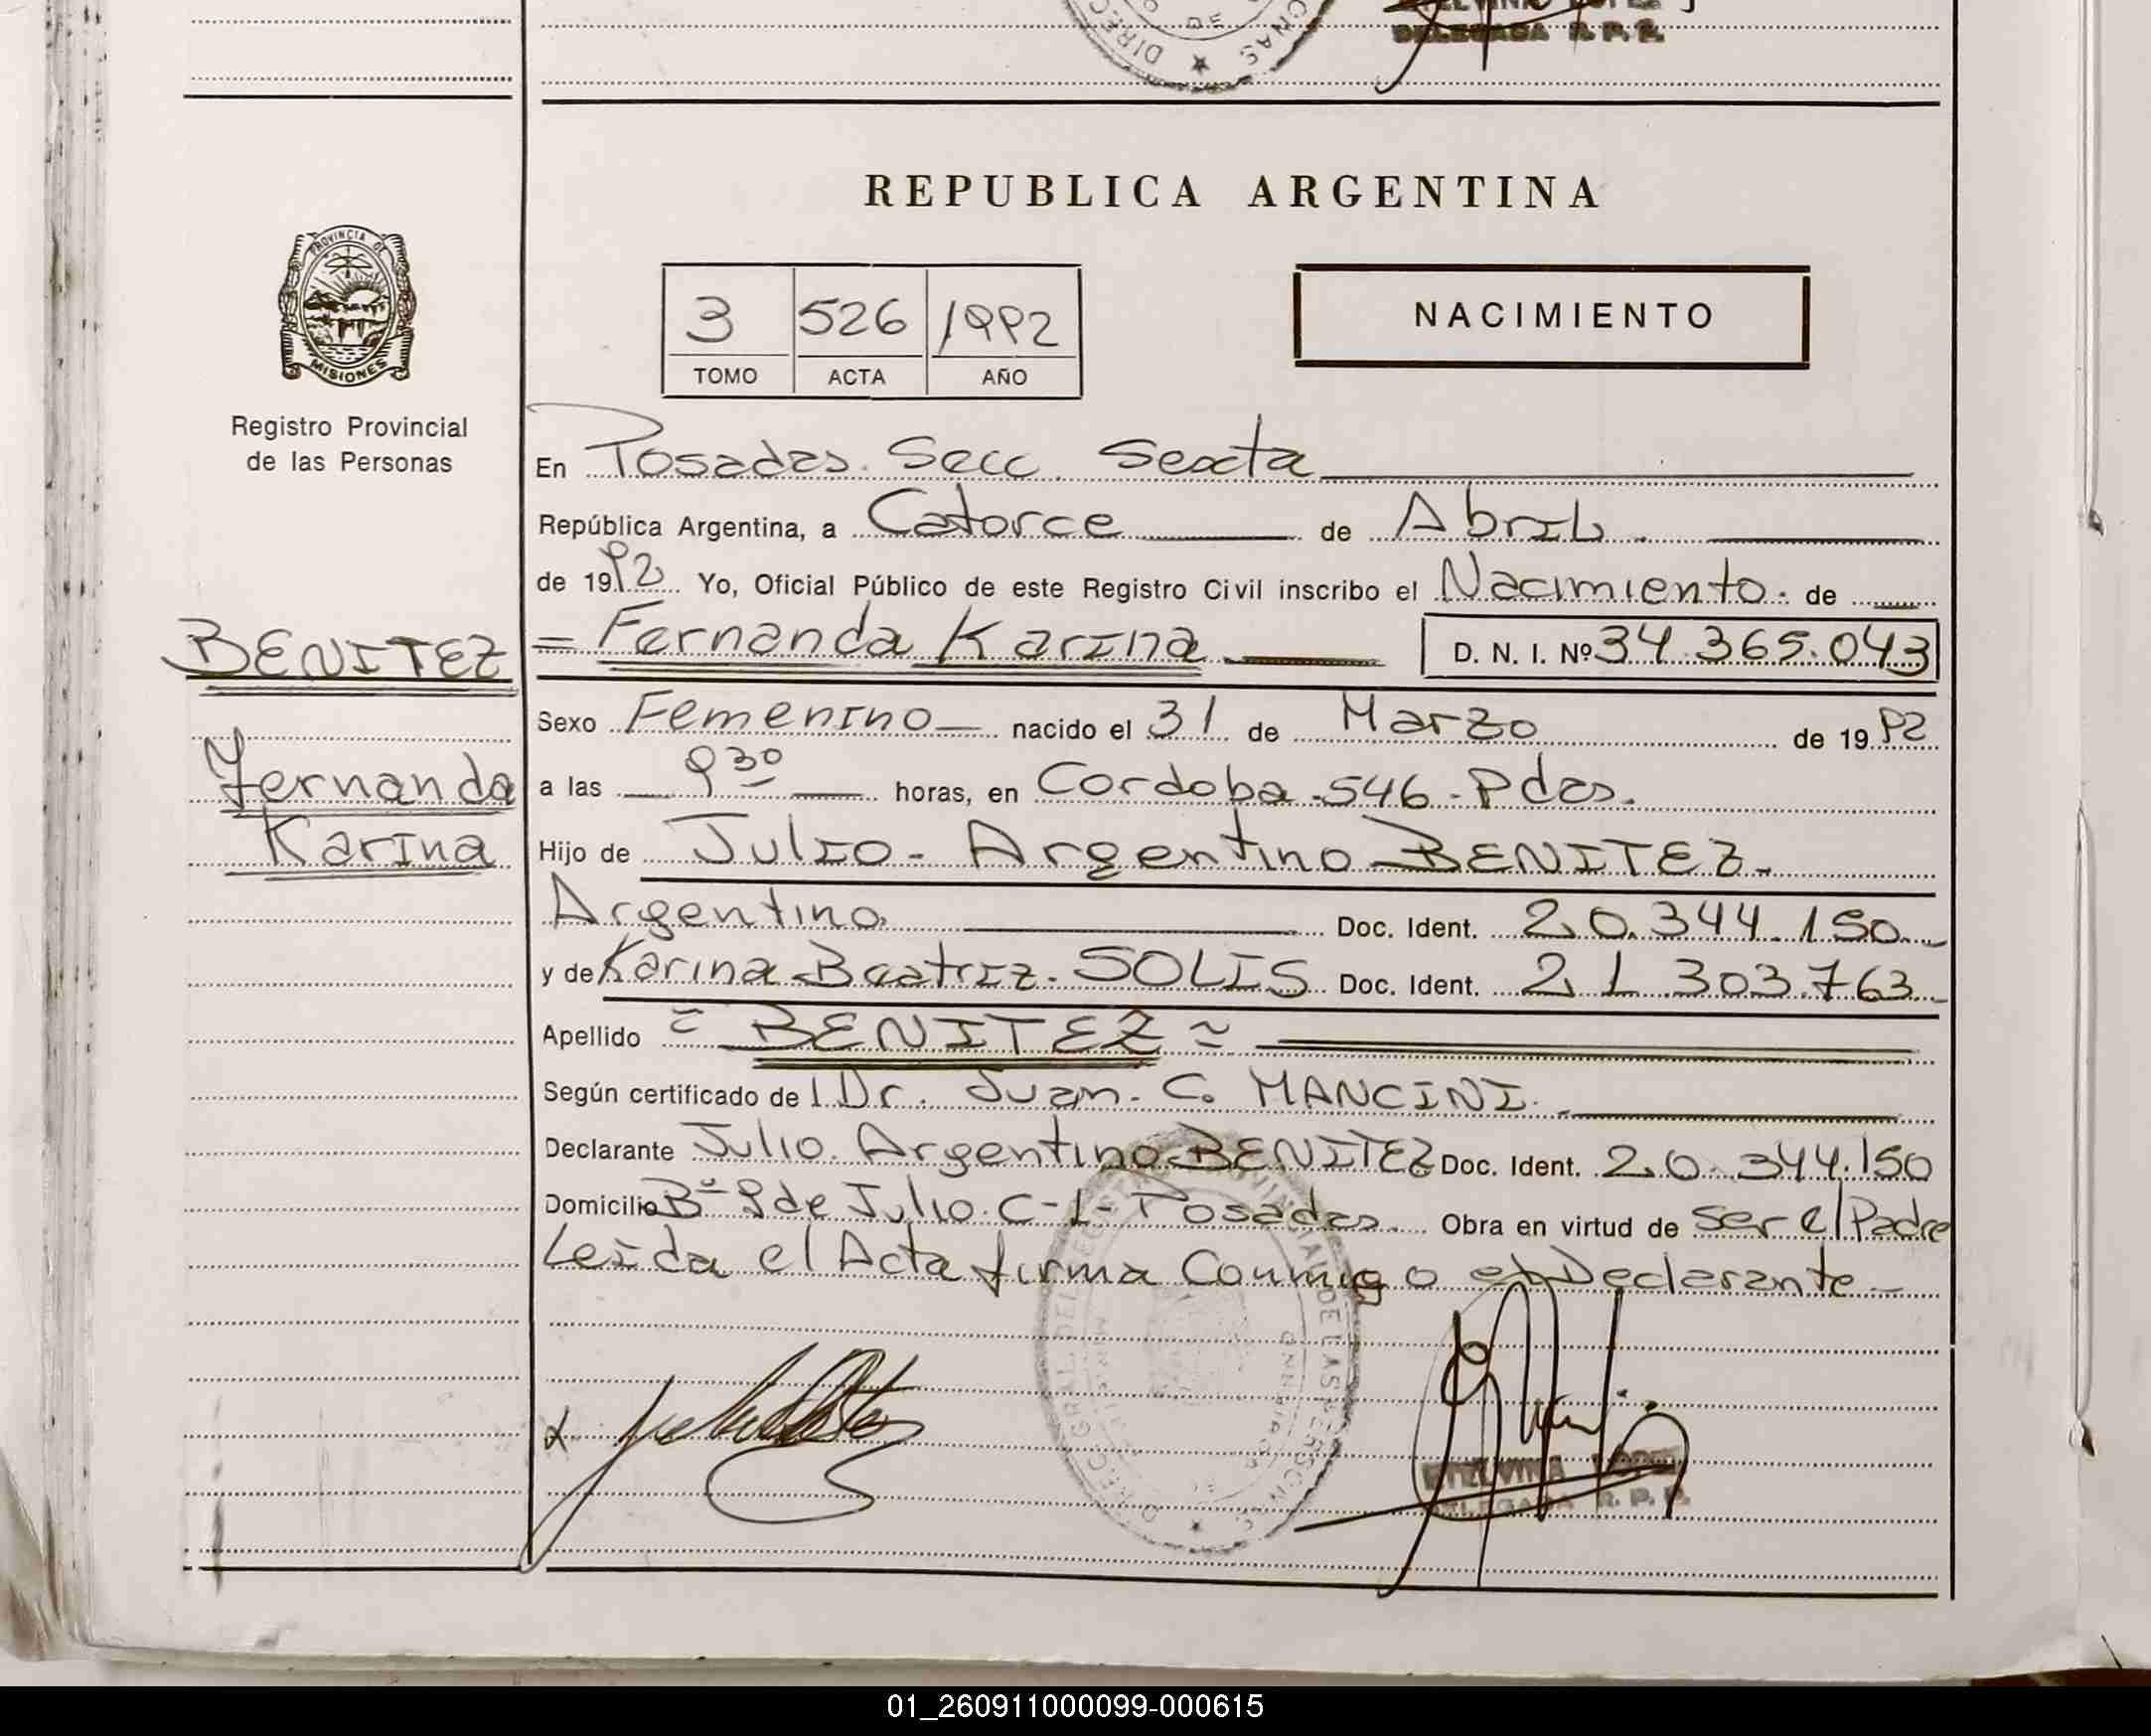 DELEGADA R. P. P.
REPUBLICA ARGENTINA
PROVINCIA DE
MISIONES
Registro Provincial
de las Personas
3 526 1992
TOMO ACTA AÑO
NACIMIENTO
En Posadas. Secc. Sexta
República Argentina, a Catorce de Abril.
de 1992 Yo, Oficial Público de este Registro Civil inscribo el Nacimiento. de
BENITEZ
= Fernanda Karina D. N. I. Nº 34.365.043
Sexo Femenino nacido el 31 de Marzo de 1992
Fernanda
Karina
a las 9 30 horas, en Cordoba 546 - Pdas.
Hijo de Julio - Argentino BENITEZ -
Argentino Doc. Ident. 20.344.150 -
y de Karina Beatriz - SOLIS Doc. Ident. 21.303.763 -
Apellido = BENITEZ =
Según certificado de l Dr. Juan - C. MANCINI.
Declarante Julio Argentino BENITEZ Doc. Ident. 20.344.150
Domicilio Bº 9 de Julio. C-1- Posadas. Obra en virtud de Ser el Padre
Leida el Acta firma Conmigo el Declarante -
ETELVINA LOPEZ
DELEGADA R. P. P.
01_260911000099-000615